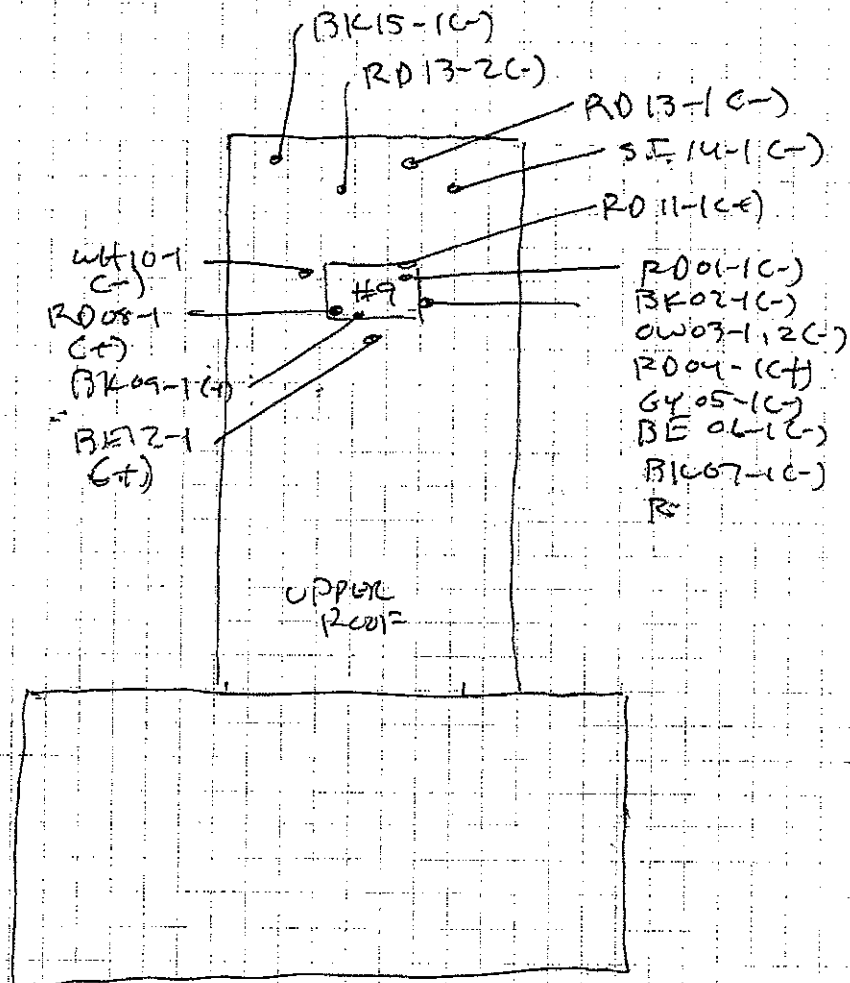 BK15-1(-)
RD13-2(-)
RD13-1(-)
SI14-1(-)
RD11-1(+)
WH10-1
(-)
RD08-1
(+)
BK09-1(+)
BE12-1
(+)
#9
RD01-1(-)
BK02-1(-)
OW03-1,2(-)
RD04-1(+)
GY05-1(-)
BE06-1(-)
BK07-1(-)
UPPER
ROOF